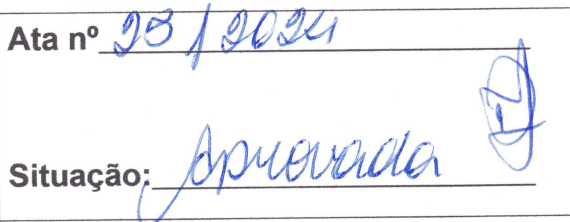 Ata nº 23 / 2024
Situação: Aprovada